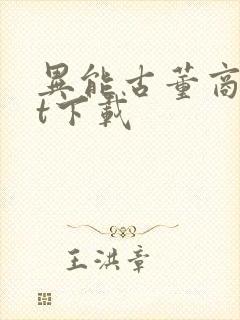 異能古董商
t下載
王洪章